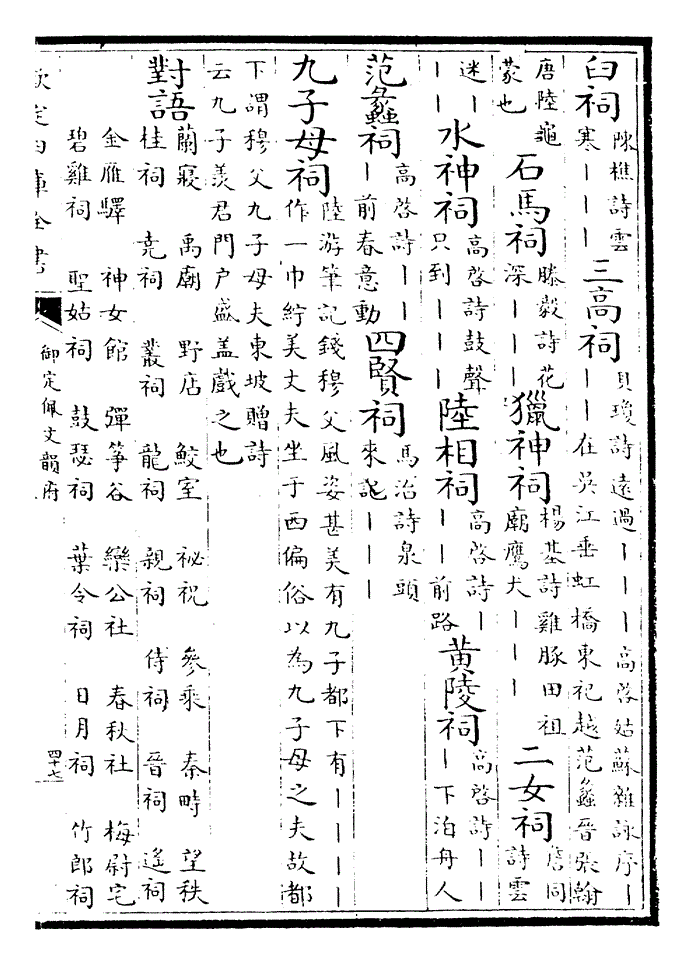 臼祠陳樵詩雲寒｜｜｜三高祠貝瓊詩遠過｜｜｜高啓姑蘇雜詠序｜｜｜在吳江垂虹橋東祀越范蠡晉張翰
唐陸龜蒙也石馬祠滕毅詩花深｜｜｜獵神祠楊基詩雞豚田祖廟鷹犬｜｜｜二女祠唐同詩雲
迷｜｜｜水神祠高啓詩鼓聲只到｜｜｜陸相祠高啓詩｜｜｜前路黄陵祠高啓詩｜｜｜下泊舟人
范蠡祠高啓詩｜｜｜前春意動四賢祠馬治詩泉頭來記｜｜｜
九子母祠陸游筆記錢穆父風姿甚美有九子都下有｜｜｜｜作一巾紵美丈夫坐于西偏俗以為九子母之夫故都
下謂穆父九子母夫東坡贈詩云九子羨君門户盛盖戲之也
對語
蘭寢 禹廟 野店 鮫室 祕祝 參乘 秦畤 望秩
桂祠 堯祠 叢祠 龍祠 親祠 侍祠 晉祠 遙祠
金雁驛 神女館 彈箏谷 欒公社 春秋社 梅尉宅
碧雞祠 聖姑祠 鼓瑟祠 葉令祠 日月祠 竹郎祠
欽定四庫全書
御定佩文韻府
四十七